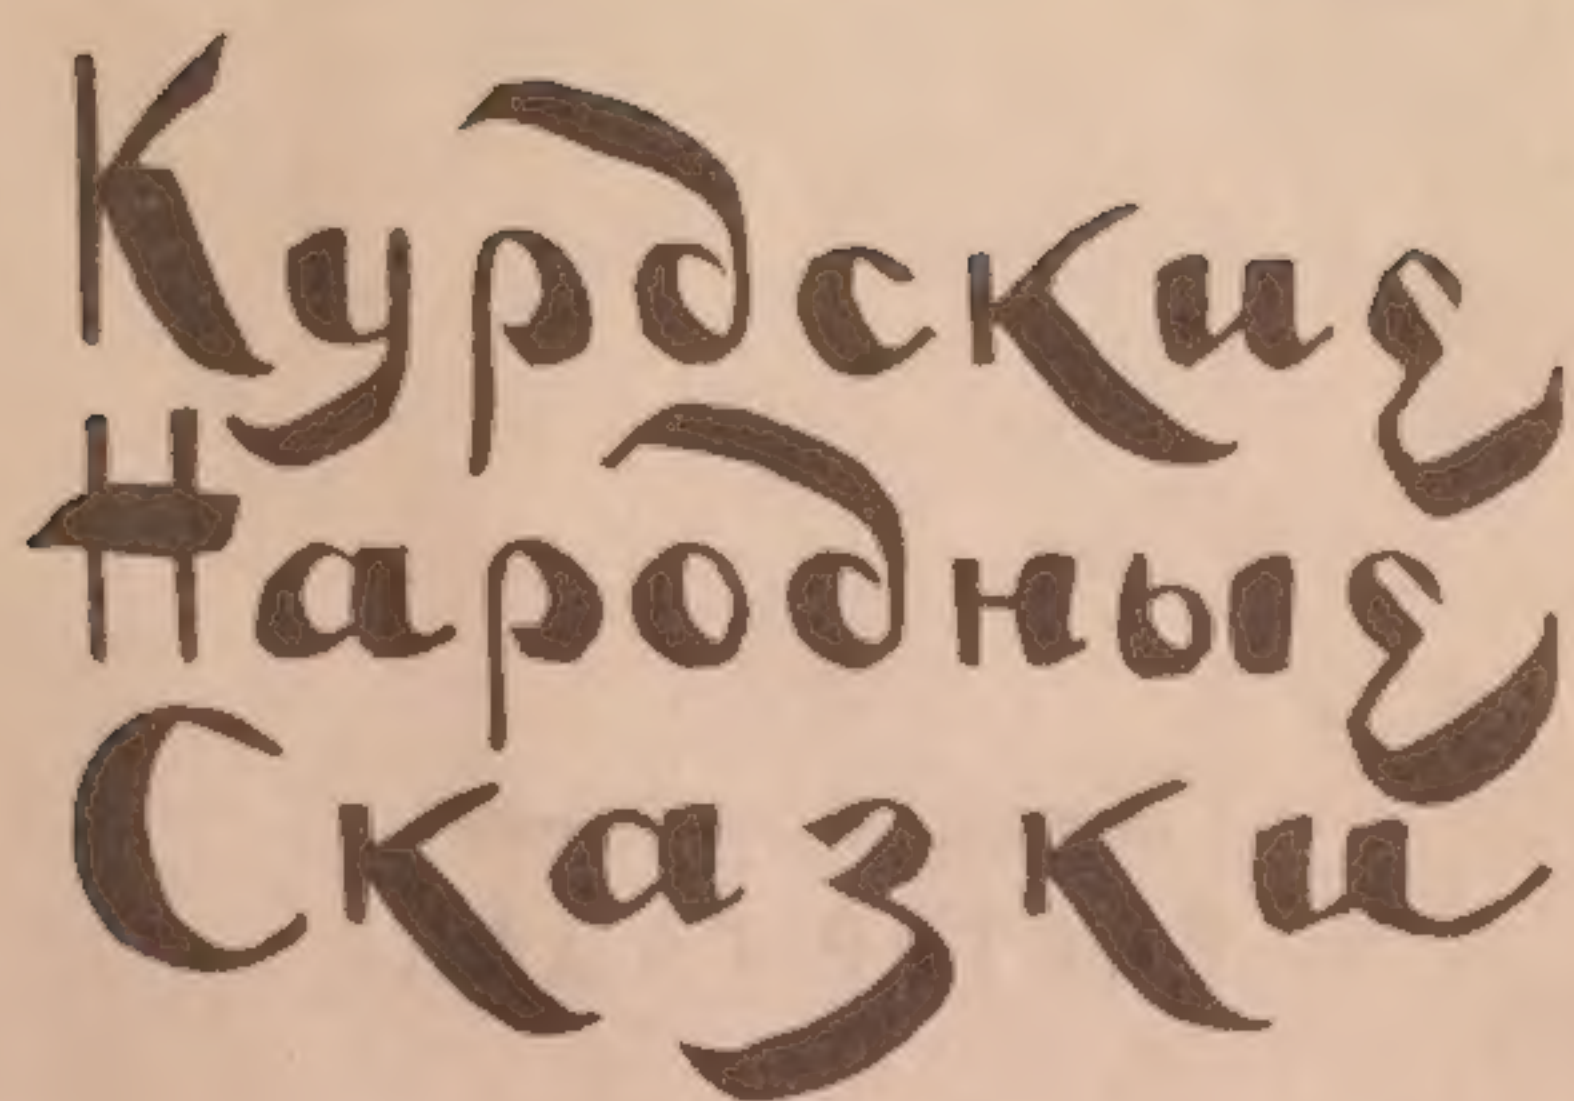 Курдские
Народные
Сказки